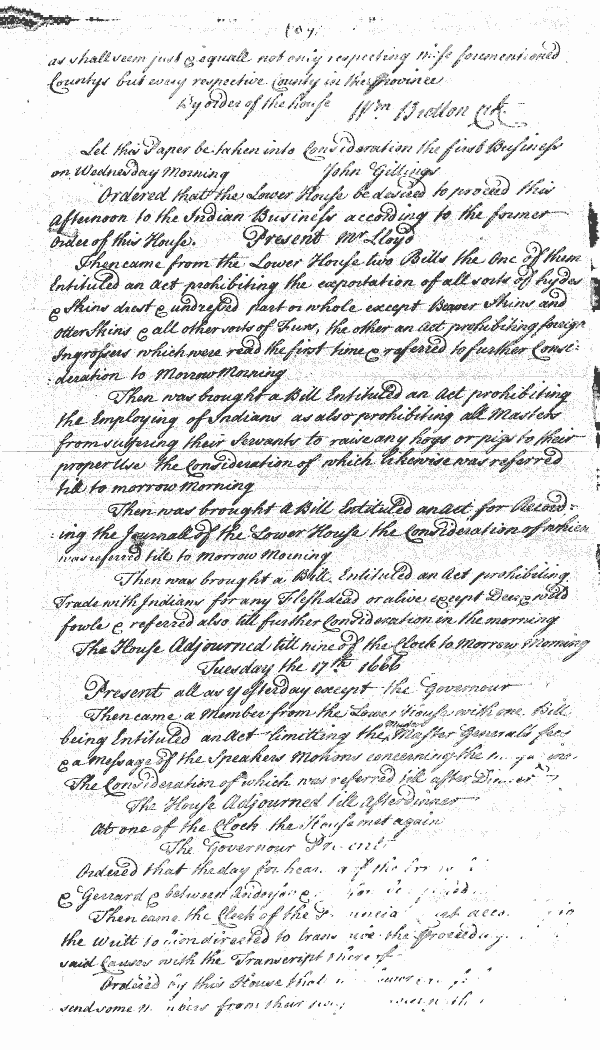 as shall seem just & equall not only respecting these forementioned
Countys but every respective County in the Province
By order of the house Wm Bretton Clk
Let this Paper be taken into Consideration the first Business
on Wednesday Morning John Gillings
Ordered that the Lower House be desired to proceed this
afternoon to the Indian Business according to the former
Order of this House. Present Mr Lloyd
Then came from the Lower House two Bills the One of them
Entituled an Act prohibiting the exportation of all sorts of hydes
& Skins drest & undressed part or whole except Beaver Skins and
Otter Skins & all other sorts of Furs, the other an Act prohibiting foreign
Ingrossers which were read the first time & referred to further Consi:
:deration to Morrow Morning
Then was brought a Bill Entituled an Act prohibiting
the Employing of Indians as also prohibiting all Masters
from suffering their Servants to raise any hogs or pigs to their
proper Use the Consideration of which likewise was referred
till to morrow Morning
Then was brought a Bill Entituled an Act for Record:
:ing the Journall of the Lower House the Consideration of which
was referred till to Morrow Morning
Then was brought a Bill Entituled an Act prohibiting
Trade with Indians for any Flesh dead or alive except Deer & wild
fowle & referred also till further Consideration in the morning
The House Adjourned till nine of the Clock to Morrow Morning
Tuesday the 17th 1666
Present all as yesterday except the Governour
Then came a Member from the Lower House with one Bill
being Entituled an Act limitting the Muster Master Generall's fees
& a message of the Speakers Motions concerning the
The Consideration of which was referred till after Dinner
The House Adjourned till After dinner
At one of the Clock the House met again
The Governour Present
Ordered that the day for hear
& Gerrard & between
Then came the Clerk of the
the writt to him directed to trans the Proceed
said Causes with the Transcript thereof
Ordered by this House that
send some from their